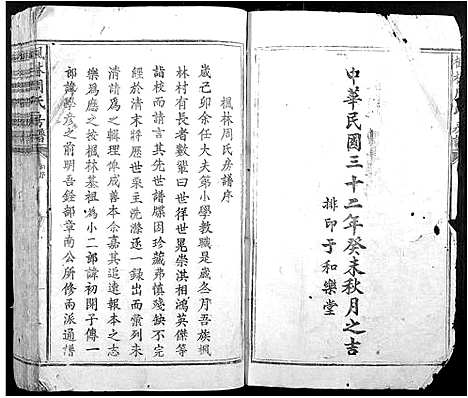 中華民國三十二年癸未秋月之吉
排印于和樂堂
楓林周氏房譜序
歲己卯余任大夫第小學教職是歲冬月吾族楓
林村有長者數輩曰世徉世晃崇淇相鴻英傑等
詣校而請言其先世譜牒因珍藏弗慎殘缺不完
經於清末將歷世彙主洗滌逐一錄出而彙列未
清請為之輯理俾成善本余嘉其追遠報本之志
樂為應之按楓林基祖為小二部諱初開子傳一
部諱勝彥之前明吾鏗部章南公所修兩派通譜
楓林周氏房譜